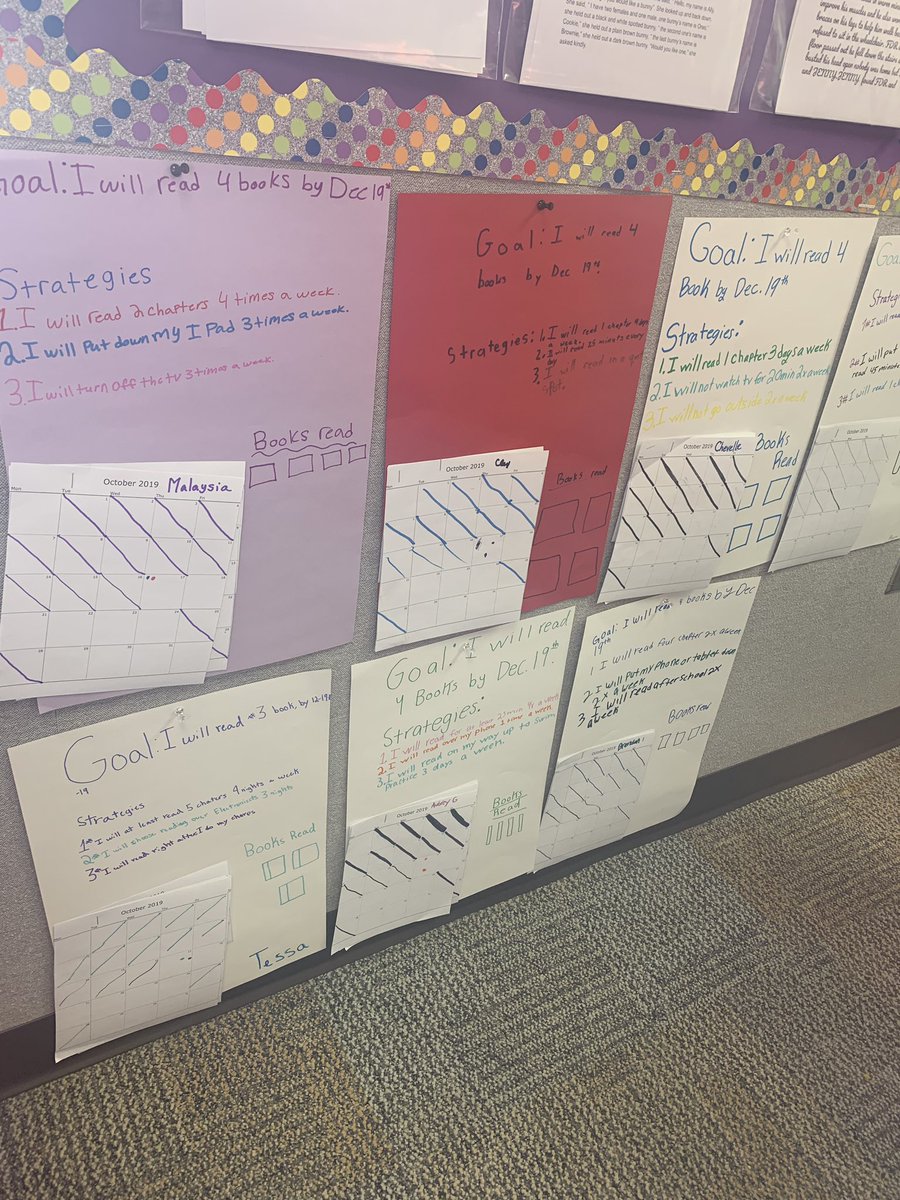 "you would like a bunny". She looked up and back down.
she held out a black and white spotted bunny. "the second one's name is
Cookie," she held out a plain brown bunny. "the last bunny's name is
Brownie," she held out a dark brown bunny. "Would you like one." she
asked kindly.
improve his muscles and he also wore
braces on his legs to help him walk
refused to sit in the wheelchair. FOR
floor passed out he fell down the stairs
busted his head open nobody was home but
and JENNY. JENNY found FOR and
Goal: I will read 4 books by Dec 19th
Strategies
1. I will read 2 chapters 4 times a week.
2. I will Put down My I Pad 3 times a week.
3. I will turn off the tv 3 times a week.
Books read
October 2019 Malaysia
Mon Tue Wed Thu Fri
Goal: I will read 4
books by Dec 19th
Strategies: 1. I will read 1 chapter 4 days
a week.
2. I will read 15 minutes every
day
3. I will read in a
spot.
Books read
October 2019 Clay
Goal: I will read 4
Book by Dec. 19th
Strategies:
1. I will read 1 chapter 3 days a week
2. I will not watch tv for 20 min 2x a week
3. I will not go outside 2x a week
Books
Read
October 2019 Chevelle
Goal:
Strategies
1# I will
2# I will put
read 45 minute
3# I will read 1
October 2019
Goal: I will read #3 book, by 12-19
-19
Strategies
1st I will at least read 5 chaters 4 nights a week
2nd I will choose reading over Electronicts 3 nights
3rd I will read right after I do my chores
Books Read
October 2019
Tessa
Goal: I will read
4 Books by Dec. 19th.
Strategies:
1. I will read for at least 25 min 4x a week
2. I will read over my phone 1 time a week.
3. I will read on my way up to Swim
practice 3 days a week.
Books
Read
October 2019 Ashley G
Goal: I will read 4 books by Dec
19th
1 I will read four chapter 2x a week
2 I will put my phone or tablet down
2x a week
3. I will read after school 2x
a week
Books read
October 2019